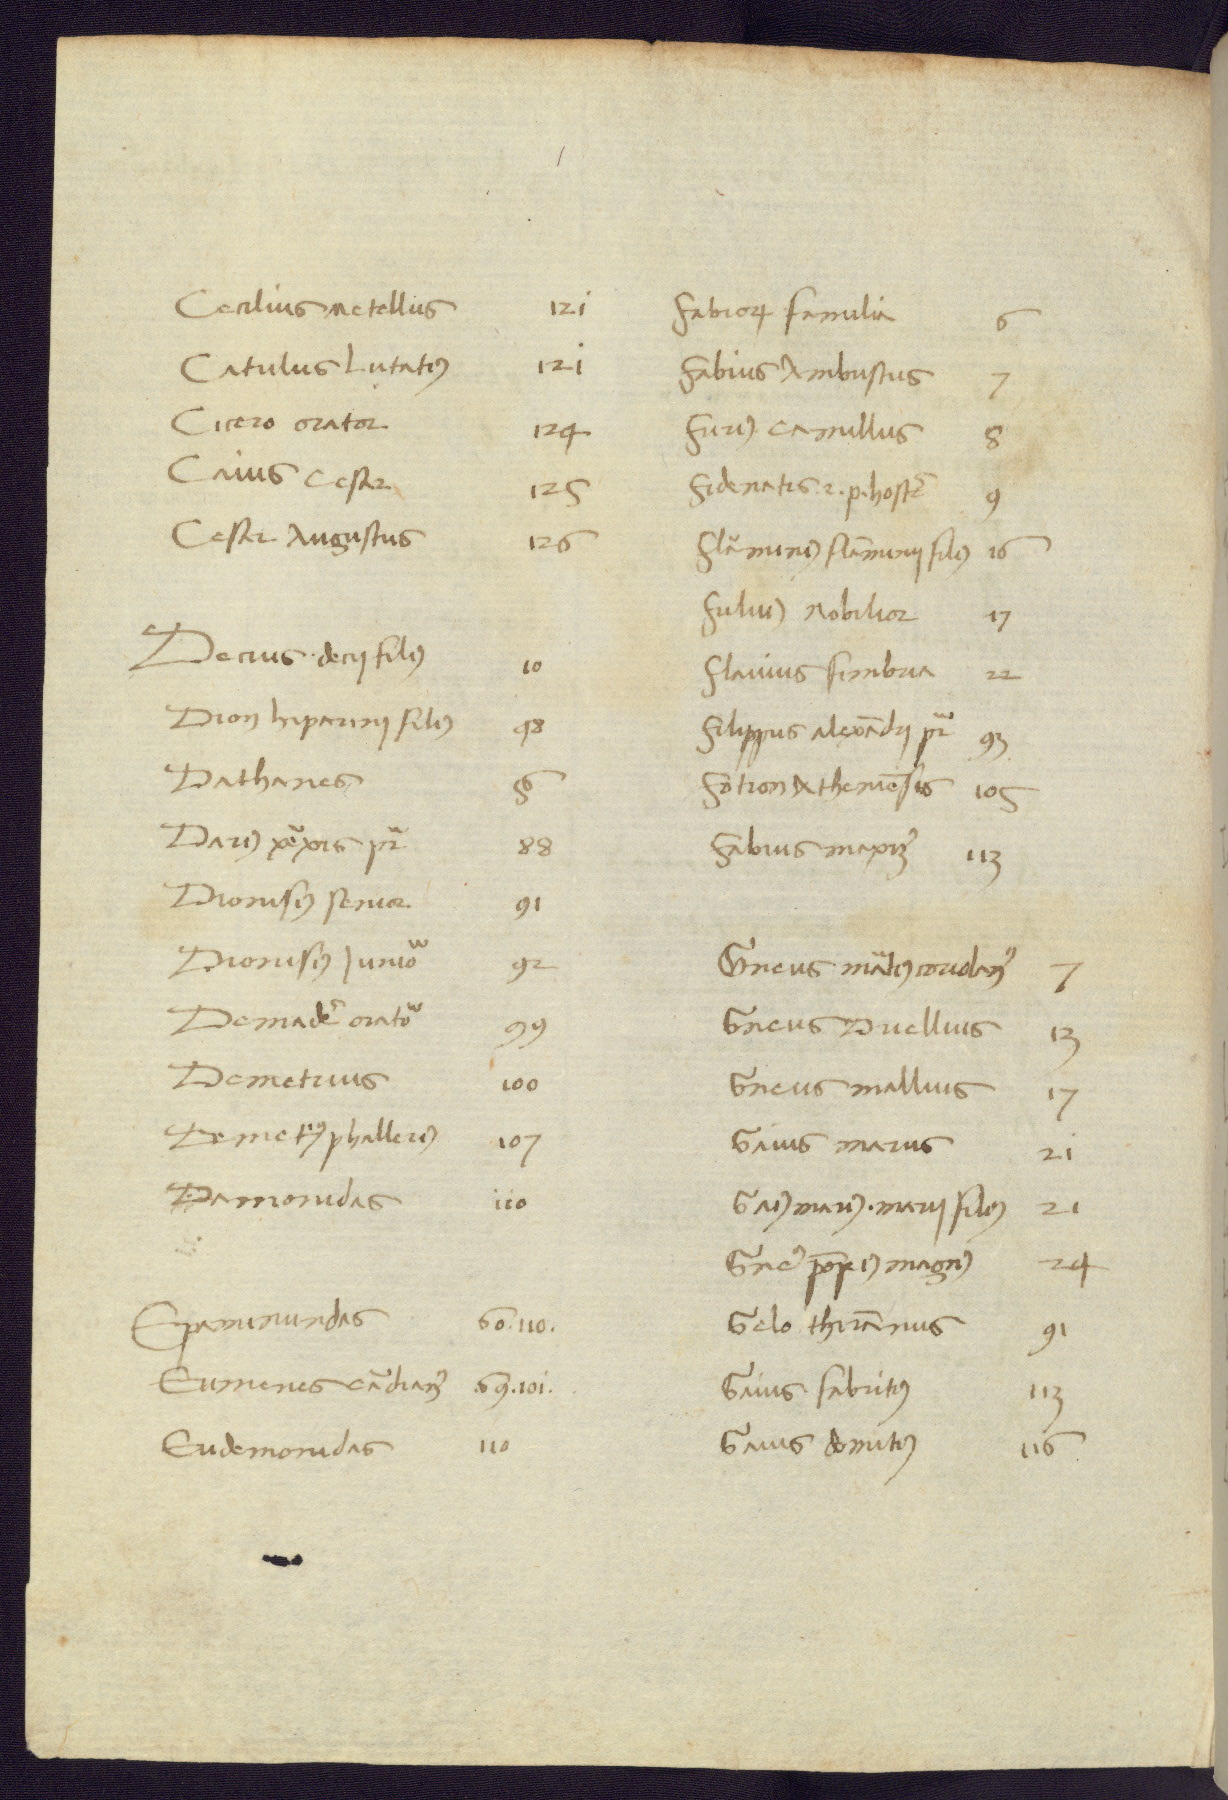 Cecilius metellus 121
Catulus Lutatꝰ 121
Cicero orator 124
Caius Cesar 125
Cesar Augustus 126
Decius decij filiꝰ 10
Dion hiparini filiꝰ 48
Dathanes 56
Dariꝰ xẽxis pr̃ 88
Dionisiꝰ senior 91
Dionisiꝰ Junior 92
Demades orator 99
Demetrius 100
Demetriꝰ phalleriꝰ 107
Damonidas 110
Epaminundas 60.110.
Eumenes cãdianꝰ 69.101.
Eudemonidas 110
Fabioꝝ familia 6
Fabius Ambustus 7
Furiꝰ camillus 8
Fidenates r. p. hostes 9
Flãminiꝰ flãminij filiꝰ 16
Fuluiꝰ Nobilior 17
Flauius fimbria 22
Filippus alexãdri pr̃ 93
Fotion Atheniẽsis 105
Fabius maximꝰ 113
Gneus mãtiꝰ coriolanꝰ 7
Gneus Duellius 13
Gneus mallius 17
Gaius marius 21
Gaiꝰ mariꝰ marij filiꝰ 21
Gneꝰ põpeiꝰ magnꝰ 24
Gelo thirãnus 91
Gaius fabritiꝰ 113
Gaius domitiꝰ 116